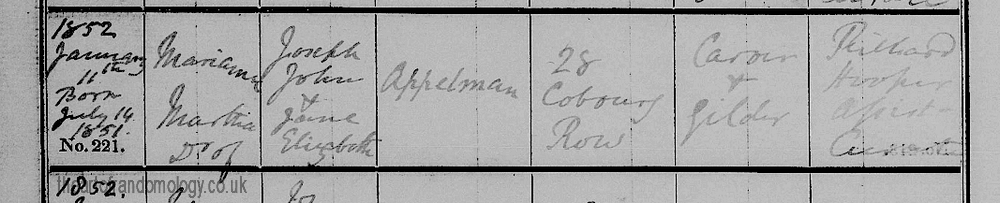 1852
January
11th
Born
July 14
1851.
No. 221.
Mariann
Martha
Dr of
Joseph
John
+
Jane
Elizabeth
Appelman
28
Cobourg
Row
Carver
+
Gilder
Richard
Hooper
Assist
Curate
1852.
andomology.co.uk